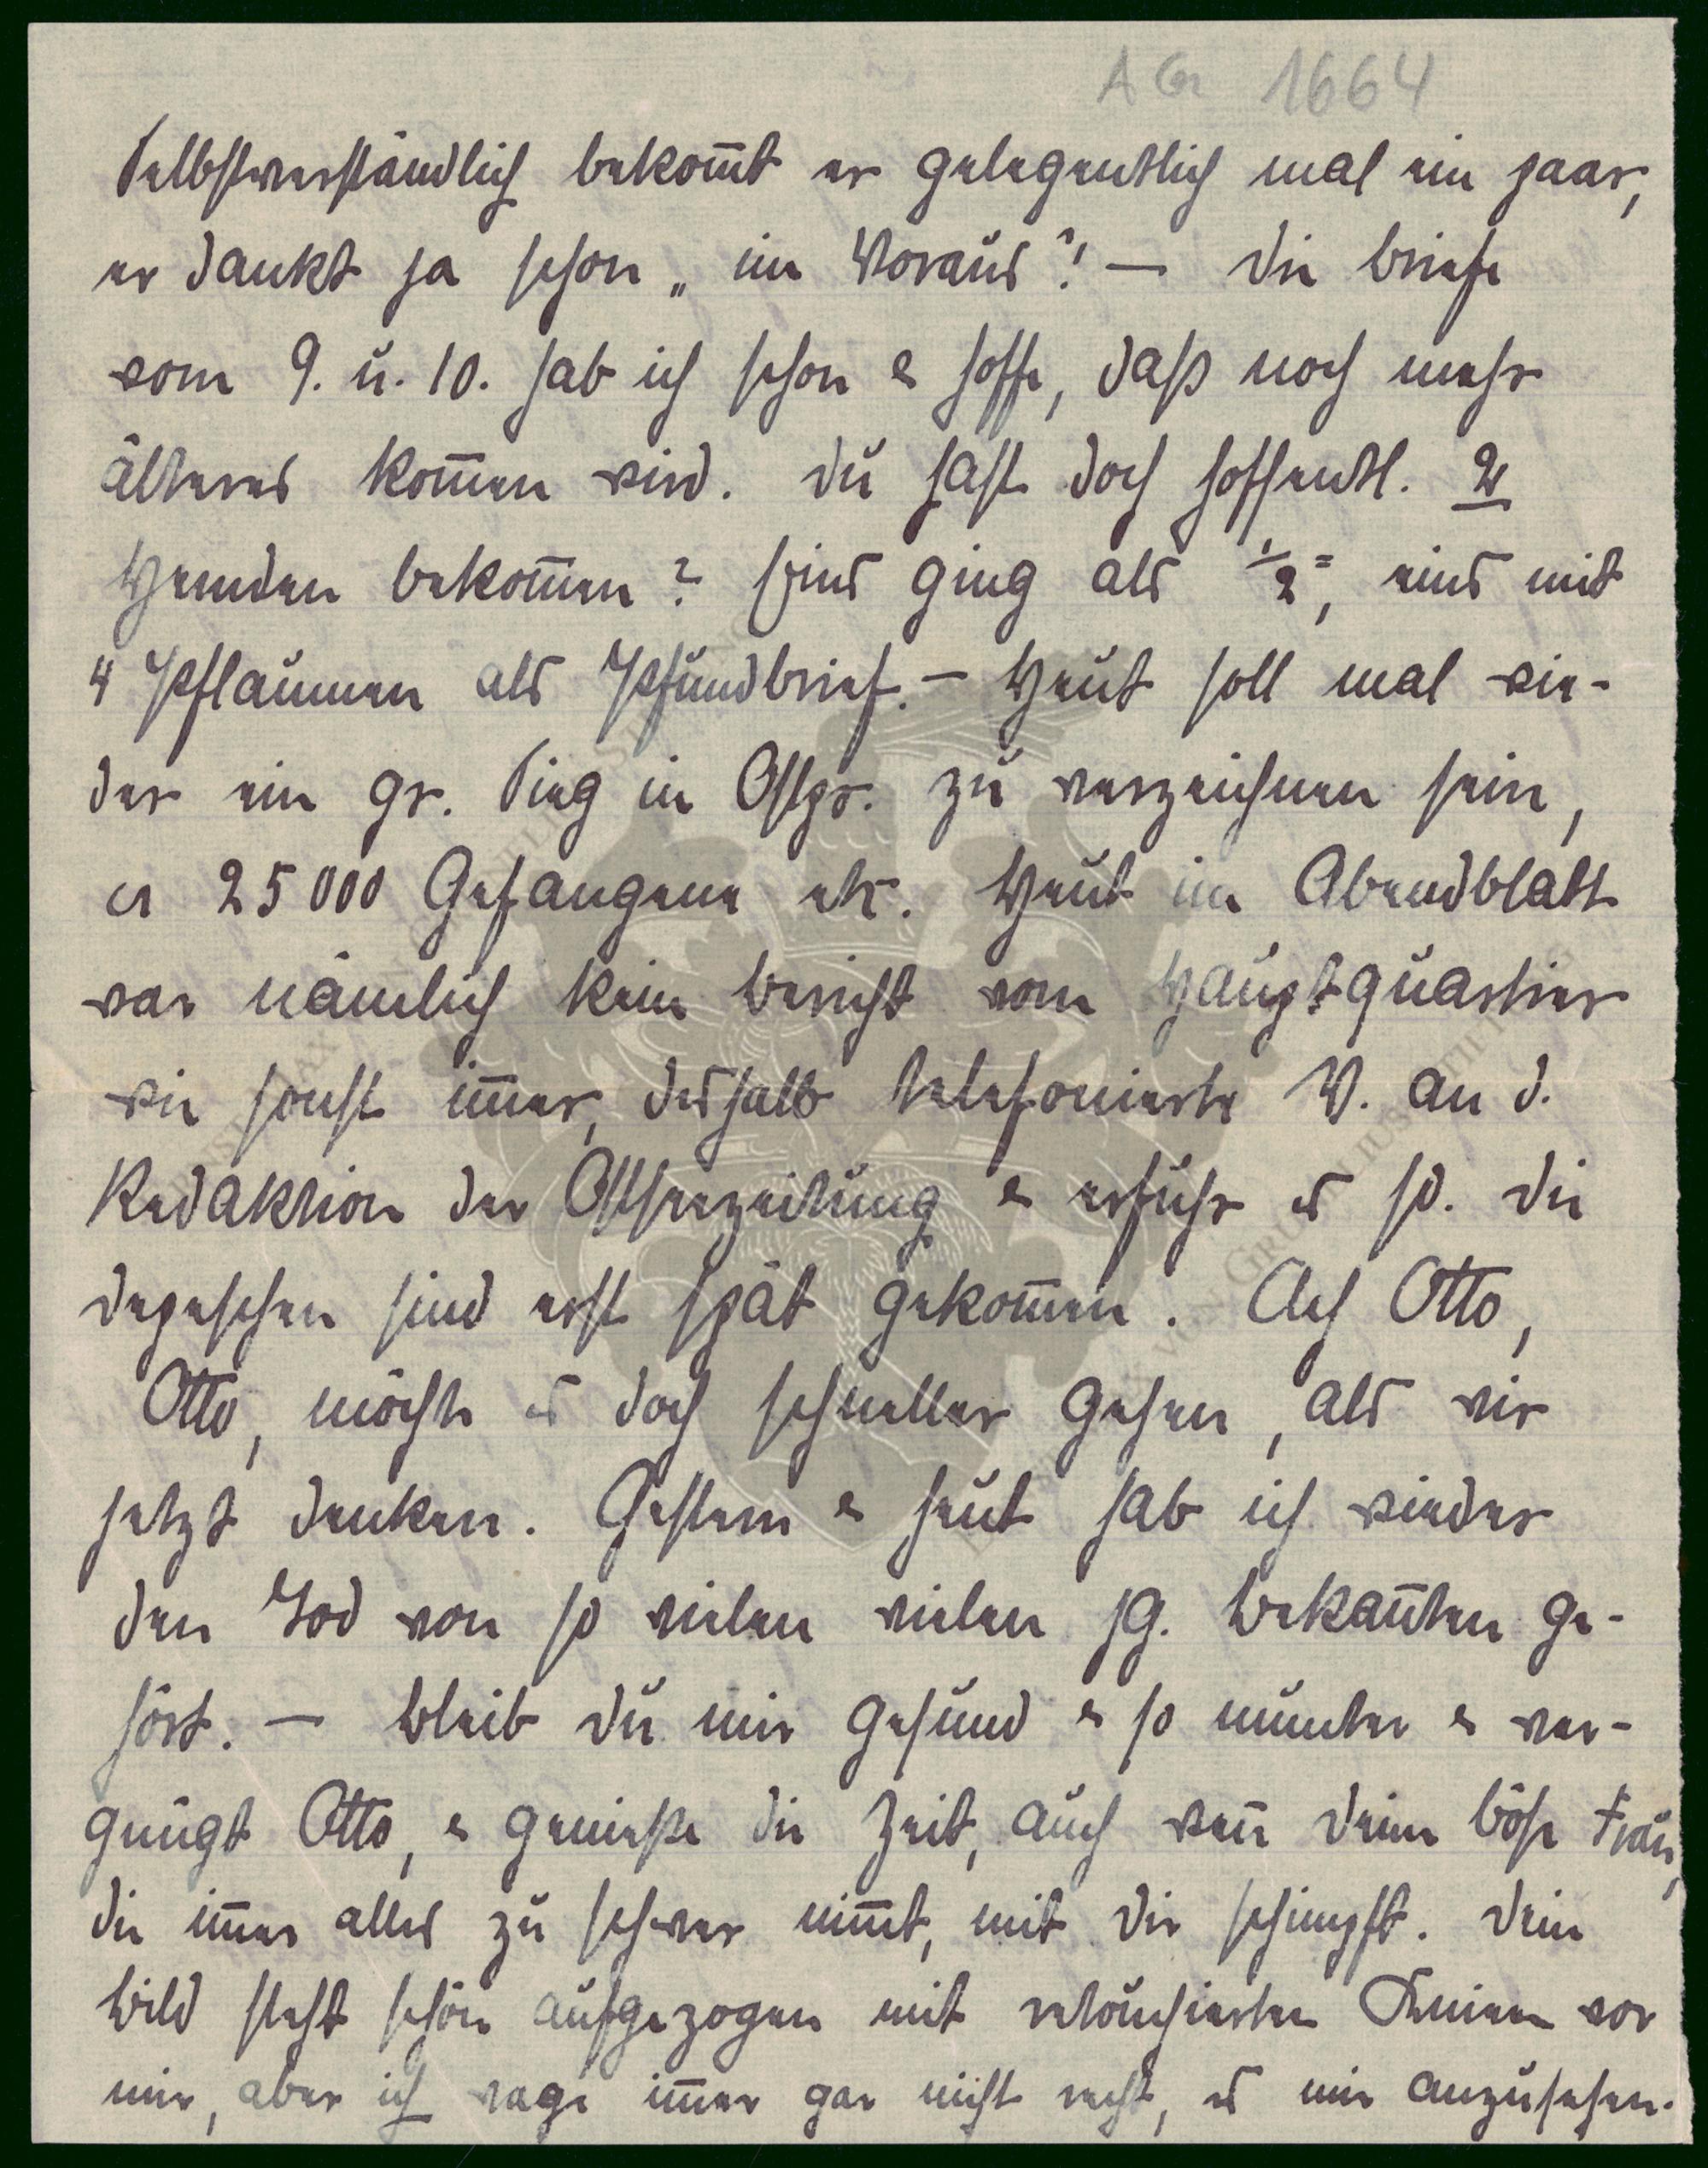 A Gr 1664
Selbstverständlich bekom̅t er gelegentlich mal ein paar,
er dankt ja schon „im Voraus"! — Die Briefe
vom 9. u. 10. hab ich schon & hoffe, daß noch mehr
älteres kom̅en wird. Du hast doch hoffentl. 2
Hemden bekom̅en? Eins ging als 1/2 =, eins mit
4 Pflaumen als Pfundbrief. — Heut soll mal wie-
der ein gr. Sieg in Ostpr. zu verzeichnen sein,
ca 25000 Gefangene etc. Heut im Abendblatt
war nämlich kein Bericht vom Hauptquartier
wie sonst im̅er, deshalb telefonierte V. an d.
Redaktion der Ostseezeitung & erfuhr es so. Die
Depeschen sind erst spät gekom̅en. Ach Otto,
Otto, möchte es doch schneller gehen, als wir
jetzt denken. Gestern & heut hab ich wieder
den Tod von so vielen vielen jg. Bekan̅ten ge-
hört. — Bleib Du mir gesund & so munter & ver-
gnügt Otto, & genieße die Zeit, auch wen̅ Deine böse Frau,
die im̅er alles zu schwer nim̅t, mit Dir schimpft. Dein
Bild steht schön aufgezogen mit retouchierten Knieen vor
mir, aber ich wage im̅er gar nicht recht, es mir anzusehen.